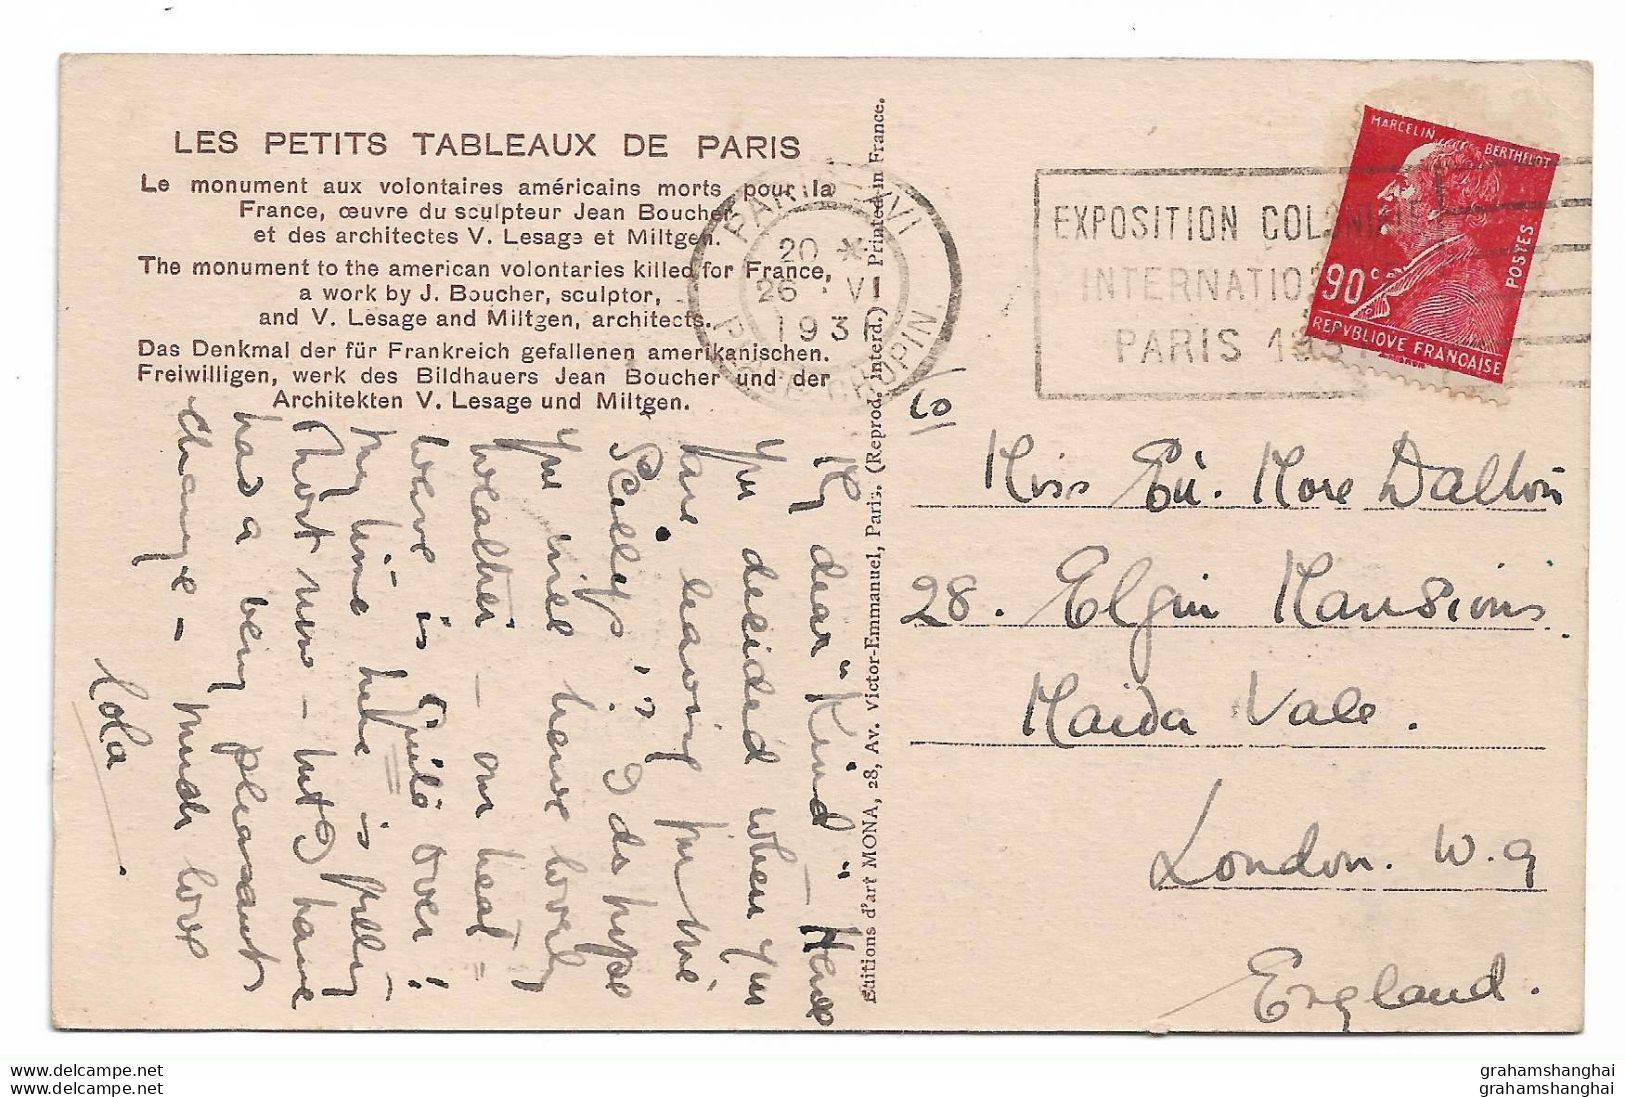 LES PETITS TABLEAUX DE PARIS
Le monument aux volontaires américains morts pour la
France, œuvre du sculpteur Jean Boucher
et des architectes V. Lesage et Miltgen.
The monument to the american volontaries killed for France,
a work by J. Boucher, sculptor,
and V. Lesage and Miltgen, architects.
Das Denkmal der für Frankreich gefallenen amerikanischen.
Freiwilligen, werk des Bildhauers Jean Boucher und der
Architekten V. Lesage und Miltgen.
My dear "Kind" – Have
you decided when you
are leaving for the
Scillys!? I do hope
you will have lovely
weather – our heat-
wave is quite over!
My time here is
short now – but I have
had a very pleasant
change – much love
Lola.
Editions d'art MONA, 28, Av. Victor-Emmanuel, Paris. (Reprod. interd.) Printed in France.
PARIS XVI
20 *
26 VI
1931
PLACE CHOPIN
EXPOSITION COLONIALE
INTERNATIO
PARIS 1931
MARCELIN BERTHELOT
POSTES
90c
REPVBLIQVE FRANÇAISE
Miss More Dalton
28. Elgin Mansions
Maida Vale.
London. W.9
England.
grahamshanghai
grahamshanghai